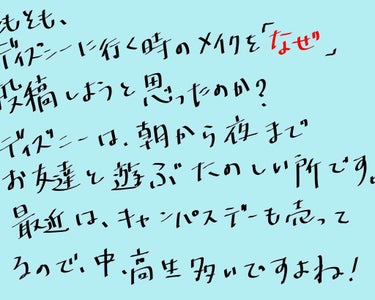 もそも、
ディズニーに行く時のメイクを「なぜ」
投稿しようと思ったのか？
ディズニーは、朝から夜まで
お友達と遊ぶたのしい所です。
最近は、キャンパスデーも売って
るので、中、高生多いですよね！